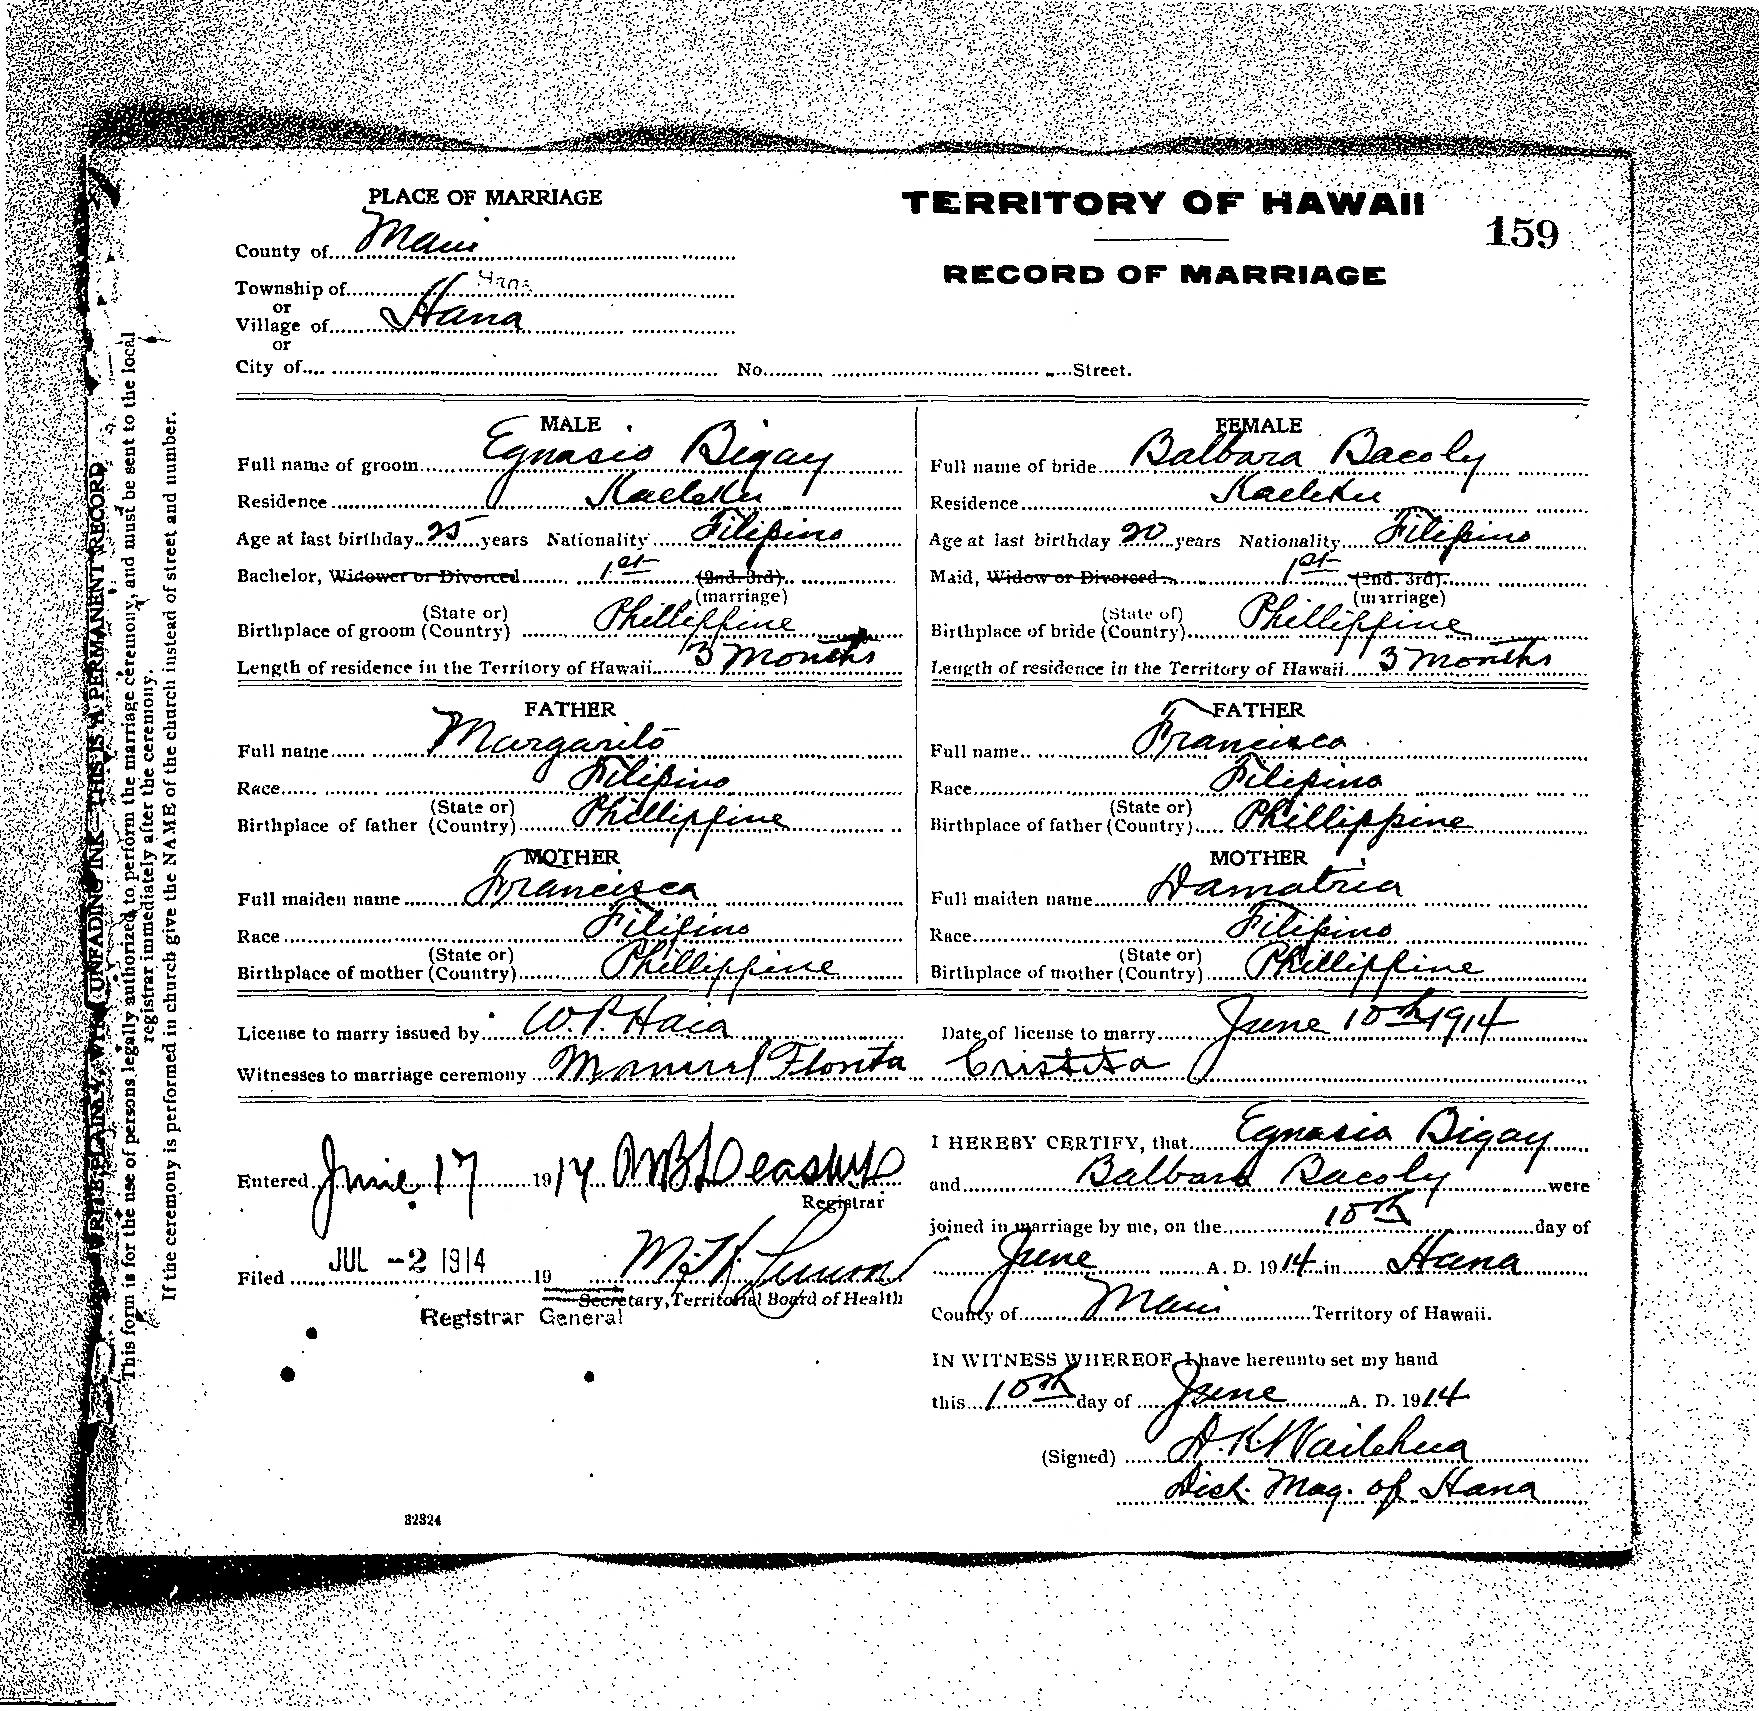 PLACE OF MARRIAGE
TERRITORY OF HAWAII
159
County of Maui
RECORD OF MARRIAGE
Township of Hana
or
Village of Hana
or
City of No. Street.
MALE
Full name of groom Egnasio Bigay
Residence Kaeleku
Age at last birthday 25 years Nationality Filipino
Bachelor, Widower or Divorced 1st (2nd. 3rd)
(marriage)
Birthplace of groom (State or) (Country) Phillippine
Length of residence in the Territory of Hawaii 3 Months
FEMALE
Full name of bride Balbara Bacoly
Residence Kaeleku
Age at last birthday 20 years Nationality Filipino
Maid, Widow or Divorced 1st (2nd. 3rd)
(marriage)
Birthplace of bride (State of) (Country) Phillippine
Length of residence in the Territory of Hawaii 3 Months
FATHER
Full name Margarito
Race Filipino
Birthplace of father (State or) (Country) Phillippine
MOTHER
Full maiden name Francisca
Race Filipino
Birthplace of mother (State or) (Country) Phillippine
FATHER
Full name Francisco
Race Filipino
Birthplace of father (State or) (Country) Phillippine
MOTHER
Full maiden name Damatria
Race Filipino
Birthplace of mother (State or) (Country) Phillippine
License to marry issued by W. P. Haia Date of license to marry June 10th 1914
Witnesses to marriage ceremony Florita Cristita
Entered June 17 1914
Registrar
Filed JUL -2 1914 19
Secretary, Territorial Board of Health
Registrar General
I HEREBY CERTIFY, that Egnasio Bigay
and Balbara Bacoly were
joined in marriage by me, on the 10th day of
June A. D. 1914 in Hana
County of Maui Territory of Hawaii.
IN WITNESS WHEREOF, I have hereunto set my hand
this 10th day of June A. D. 1914
(Signed) D. K. Wailehua
Dist. Mag. of Hana
32324
WRITE PLAINLY WITH UNFADING INK—THIS IS A PERMANENT RECORD
This form is for the use of persons legally authorized to perform the marriage ceremony, and must be sent to the local
registrar immediately after the ceremony.
If the ceremony is performed in church give the NAME of the church instead of street and number.